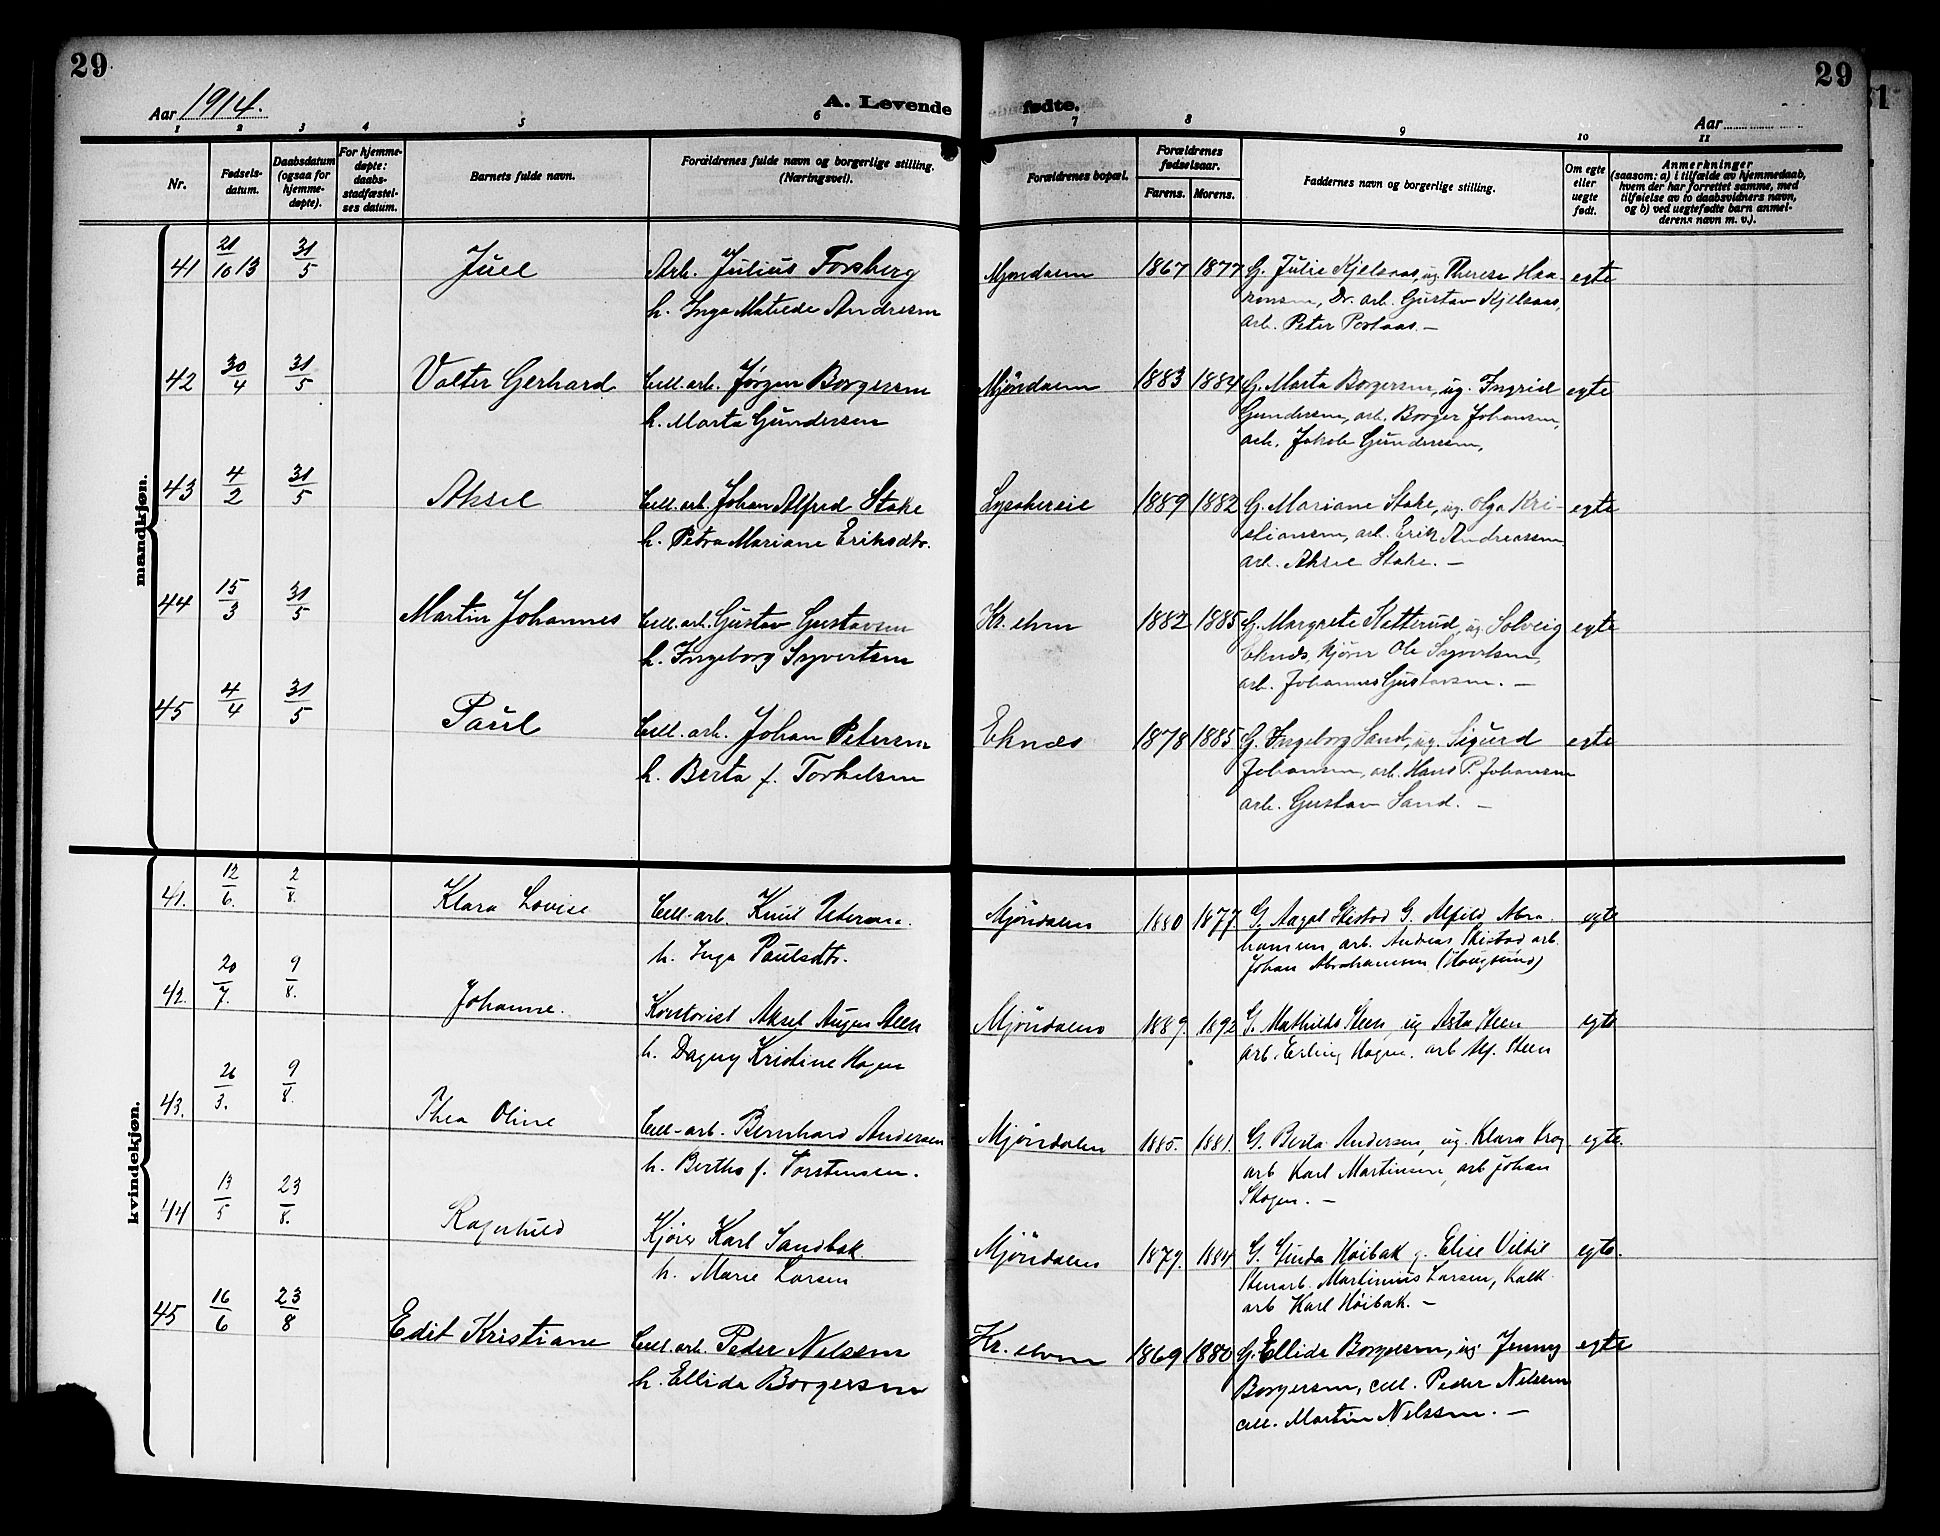 29
29
Aar 1914.
A. Levende fødte.
Aar
1 2 3 4 5 6 7 8 9 10 11
Nr.
Fødsels-
datum.
Daabsdatum
(ogsaa for
hjemme-
døpte).
For hjemme-
døpte:
daabs-
stadfæstel-
ses datum.
Barnets fulde navn.
Forældrenes fulde navn og borgerlige stilling.
(Næringsvei).
Forældrenes bopæl.
Forældrenes
fødselsaar.
Farens. Morens.
Faddernes navn og borgerlige stilling.
Om egte
eller
uegte
født.
Anmerkninger
(saasom: a) i tilfælde av hjemmedaab,
hvem der har forrettet samme, med
tilføielse av to daabsvidners navn,
og b) ved uegtefødte barn anmel-
derens navn m. v.).
mandkjøn.
41 21/10 13 31/5 Juel Arb. Julius Forsberg Mjøndalen 1867 1877 G. Julie Kjelsaas, ug. Therese Haa- egte
h. Inga Matilde Andresen
kensen, Dr. arb. Gustav Kjelsaas,
arb. Peter Portaas. —
42 30/4 31/5 Valter Gerhard Cell. arb. Jørgen Borgersen Mjøndalen 1883 1884 G. Marta Borgersen, ug. Ingrid egte
h. Marta Gundersen
Gundersen, arb. Borger Johansen,
arb. Jakob Gundersen,
43 4/2 31/5 Aksel Cell. arb. Johan Alfred Stake Lysakereie 1889 1882 G. Mariane Stake, ug. Olga Kri- egte
h. Petra Mariane Eriksdtr.
stiansen, arb. Erik Andreassen
arb. Aksel Stake. —
44 15/3 31/5 Martin Johannes Cell. arb. Gustav Gustavsen Kr. elven 1882 1885 G. Margrete Sletterud, ug. Solveig egte
h. Ingeborg Syvertsen
Eknes, kjører Ole Syvertsen,
arb. Johannes Gustavsen. —
45 4/4 31/5 Paul Cell. arb. Johan Petersen Eknes 1878 1885 G. Ingeborg Sand, ug. Sigurd egte
h. Berta f. Torkelsen
Johansen, arb. Hans P. Johansen
arb. Gustav Sand. —
kvindekjøn.
41. 12/6. 2/8. Klara Lovise Cell-arb. Knut Mjøndalen 1880 1877. G. Aagot Skistad G. Alfild Abra- egte
h. Inga Paulsdtr.
hamsen, arb. Andreas Skistad arb.
Johan Abrahamsen (Hougsund)
42. 20/7. 9/8. Johanne. Aksel Steen Mjøndalen 1889. 1892 G. Mathilde Steen, ug Asta Steen egte
h. Dagny Kristine Hagen
arb. Erling Hagen. arb Alf. Steen
43. 26/3. 9/8. Thea Oline Cell-arb. Bernhard Andersen Mjøndalen 1885. 1881. G. Berta Andersen, ug. Klara Krog egte.
h. Bertha f. Torstensen.
arb Karl Martinsen, arb Johan
Skogen. —
44 13/5 23/8. Ragnhild Kjører Karl Sandbak Mjøndalen 1879. 1884 G. Høibak g. Elise egte.
h. Marie Larsen
Stenarb. Martinius Larsen, Kalk
arb Karl Høibak. —
45 16/6 23/8 Edit Kristiane Cell. arb. Peder Nelssen Kr. elven 1869 1880 G. Ellida Borgersen, ug. Jenny egte
h. Ellida Borgersen
Borgersen, cell. Peder Nelssen
cell. Martin Nelssen. —